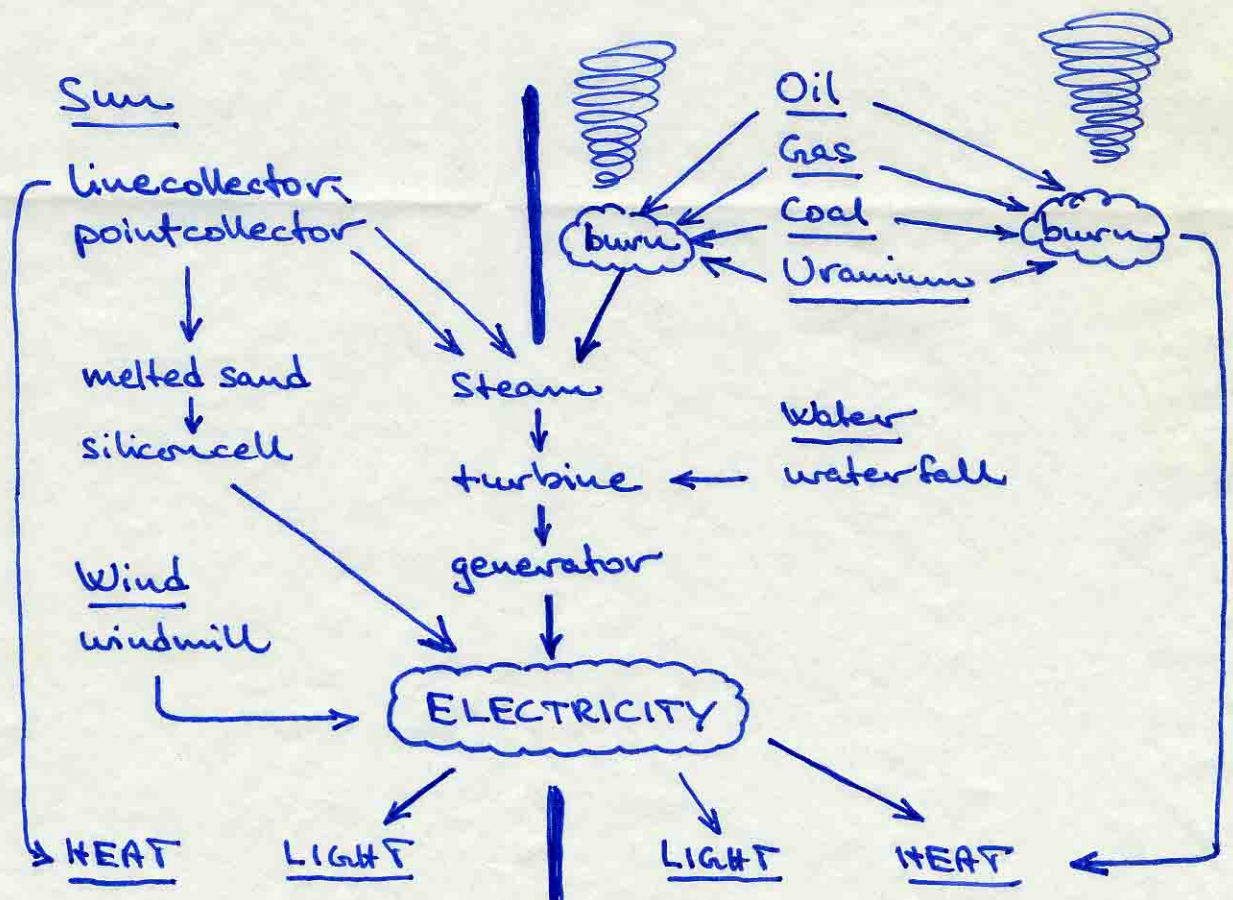 Sun
linecollector
pointcollector
melted sand
siliconcell
Wind
windmill
Oil
Gas
Coal
Uranium
burn
burn
steam
turbine
generator
Water
waterfall
ELECTRICITY
HEAT
LIGHT
LIGHT
HEAT